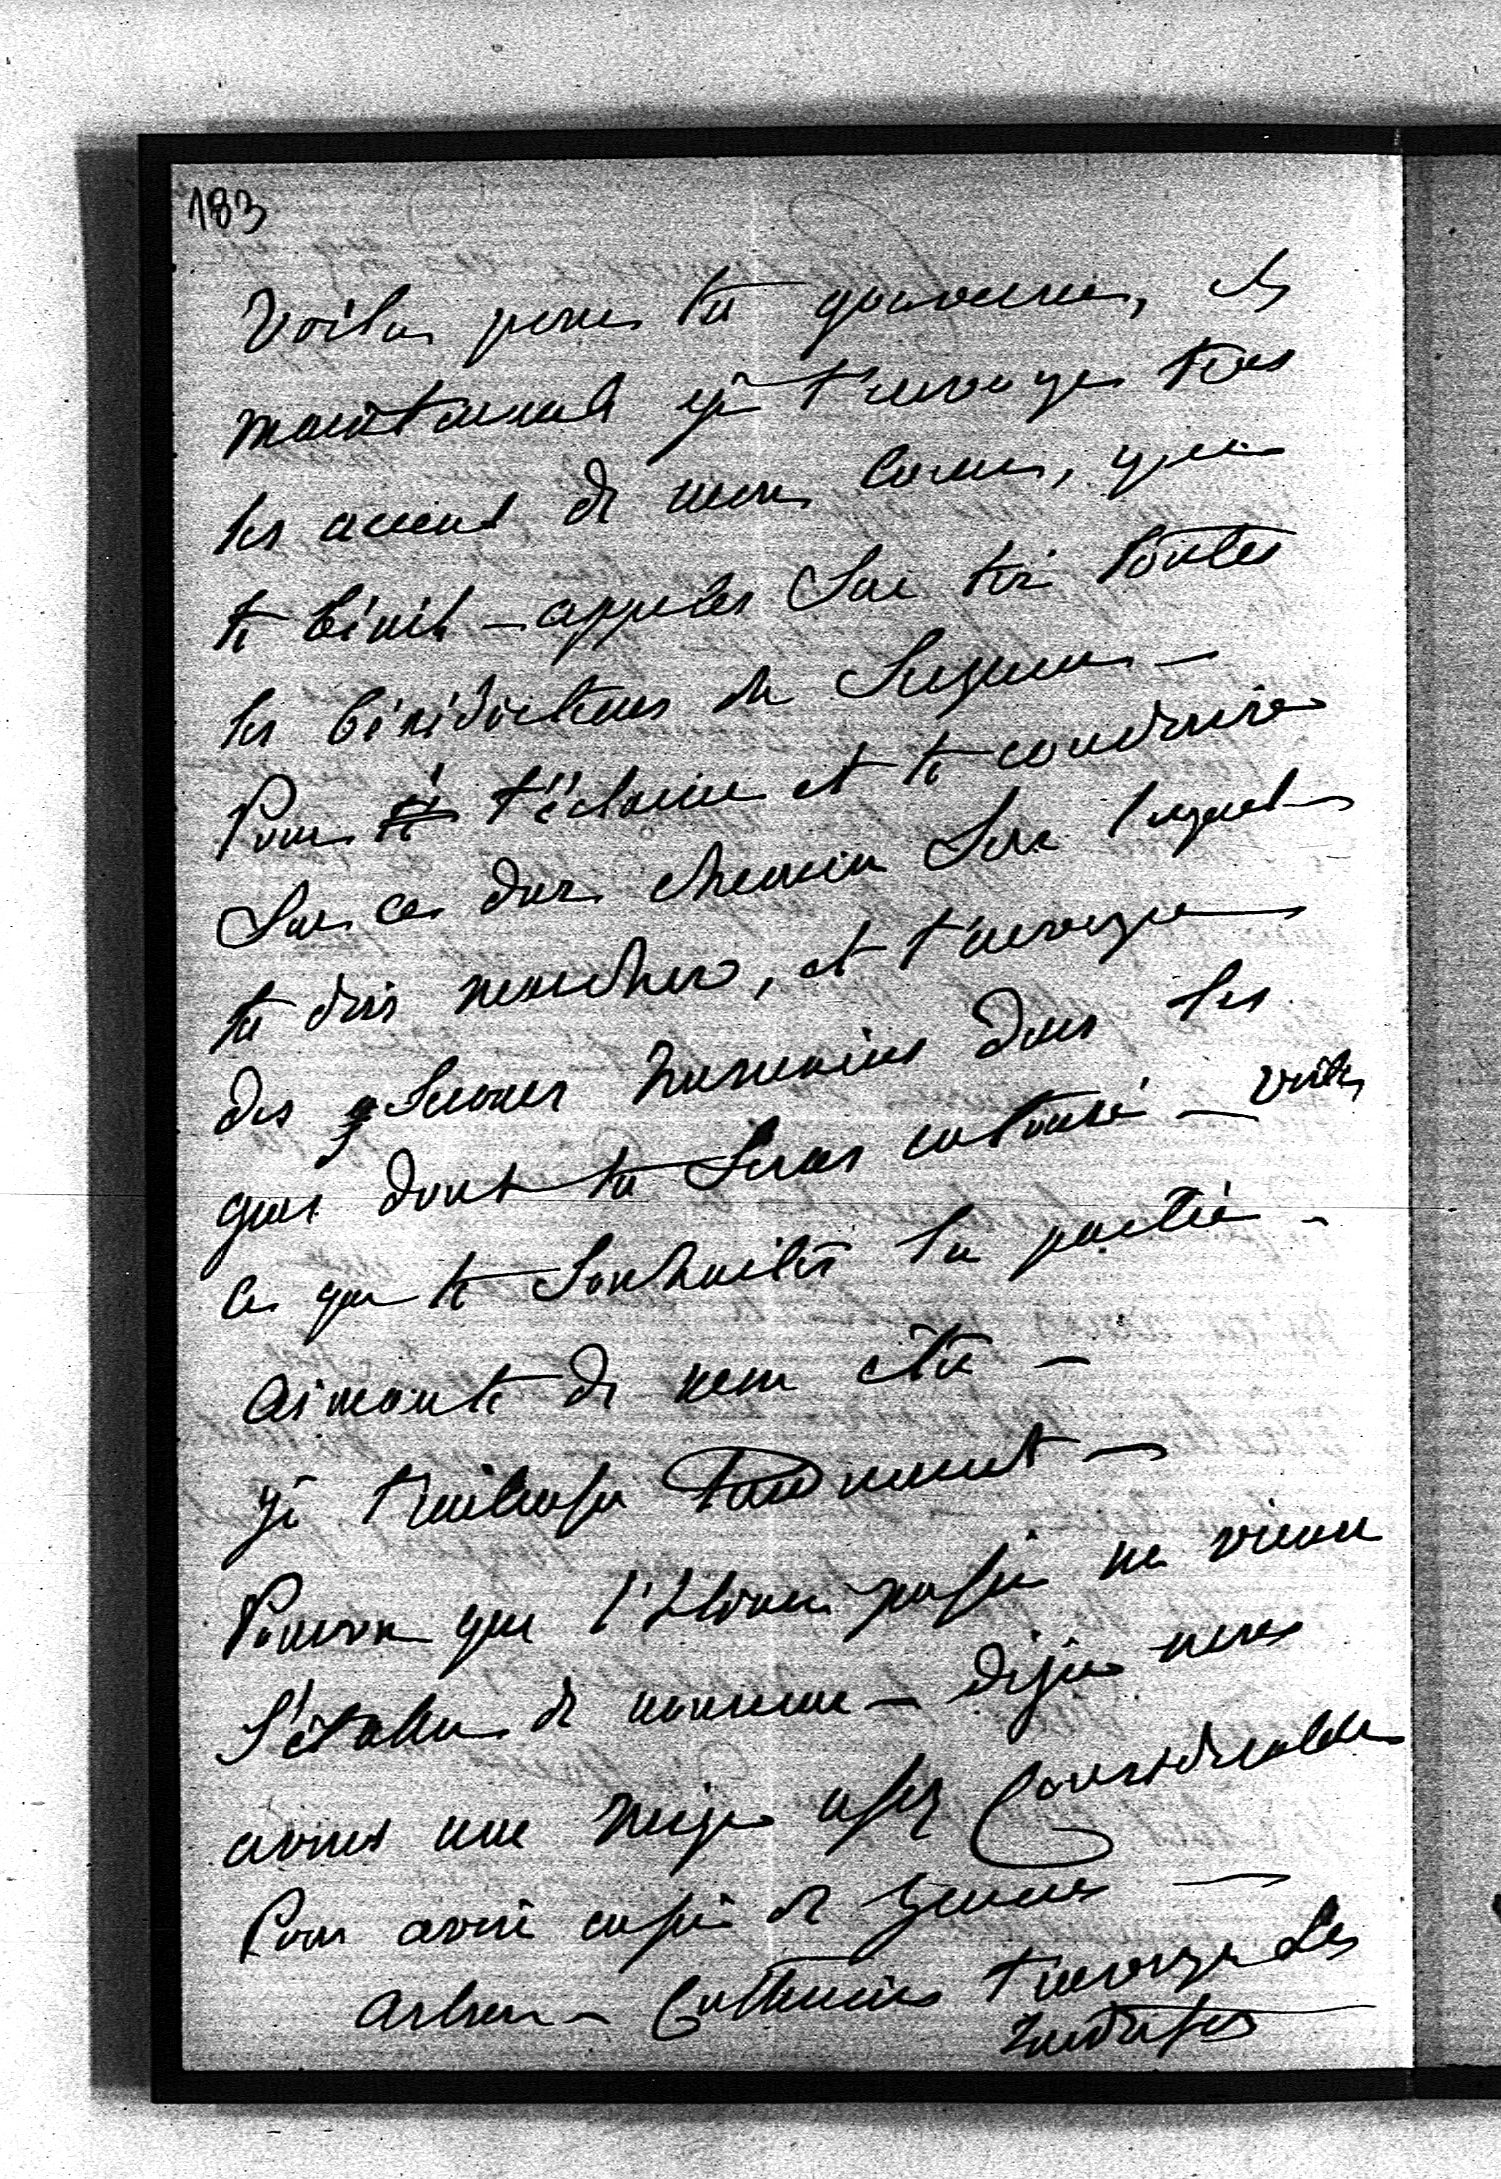 183
Voila pour ta gouverne, et
maintenant je t'envoye tous
les accens de mon coeur, qui
te bénit - appeler sur toi toutes
les bénédictions du Seigneur -
Pour t'éclairer et te conduire
sur ce dur chemin sur lequel
tu dois marcher, et t'envoye
des secours humains dans les
gens dont tu seras entouré - voila
ce que te souhaite la partie
aimante de mon être -
Je t'embrasse tendrement -
Pourvu que l'hiver passé ne vienne
s'établir de nouveau - déjà nous
avons une neige assez considérable
Pour avoir cassé de jeunes
arbres - Catherine t'envoye ses
tendresses